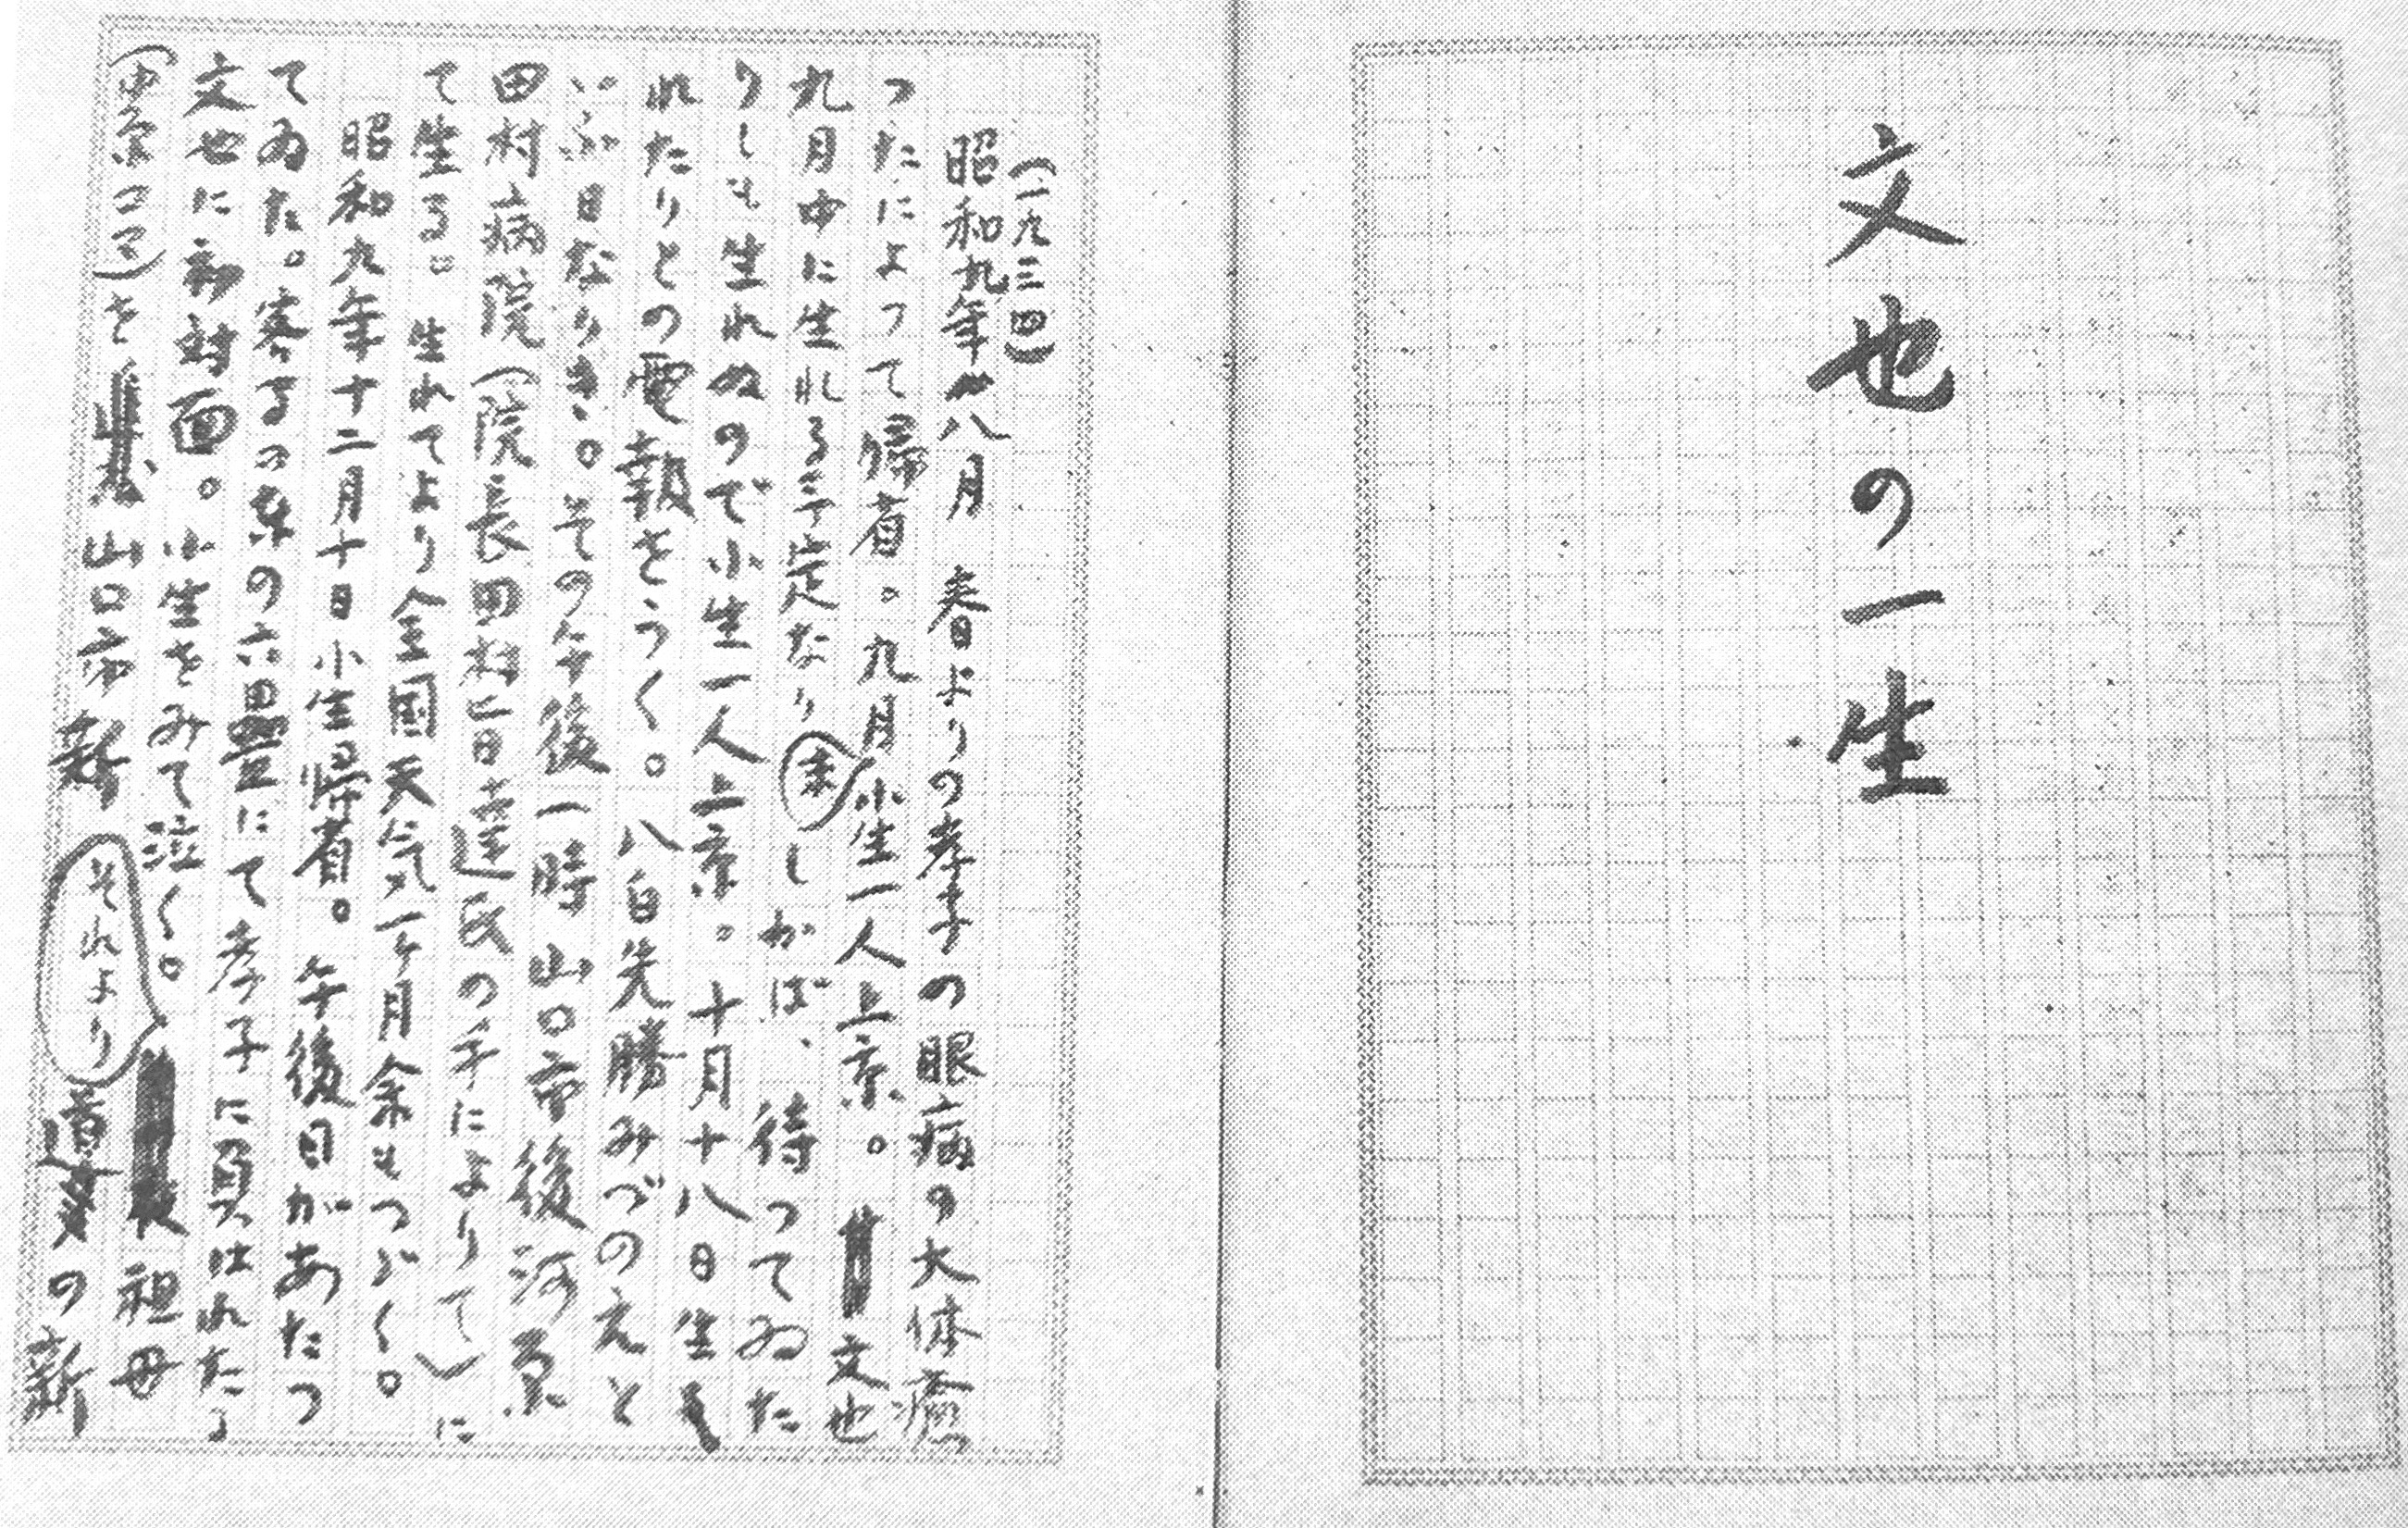 文也の一生
（一九三四）
昭和九年八月　春よりの孝子の眼病の大体癒
つたによつて帰省。九月末小生一人上京。文也
九月中に生れる予定なりしかば、待つてゐた
りしも生れぬので小生一人上京。十月十八日生
れたりとの電報をうく。八白先勝みづのえと
いふ日なりき。その午後一時山口市後河原
田村病院（院長田村旨達氏の手によりて）に
て生る。生れてより全国天気一ケ月余もつゞく。
昭和九年十二月十日小生帰省。午後日があたつ
てゐた。客間の東の六畳にて孝子に負はれたる
文也に初対面。小生をみて泣く。それより祖母
（中原コマ）を山口市新道の新